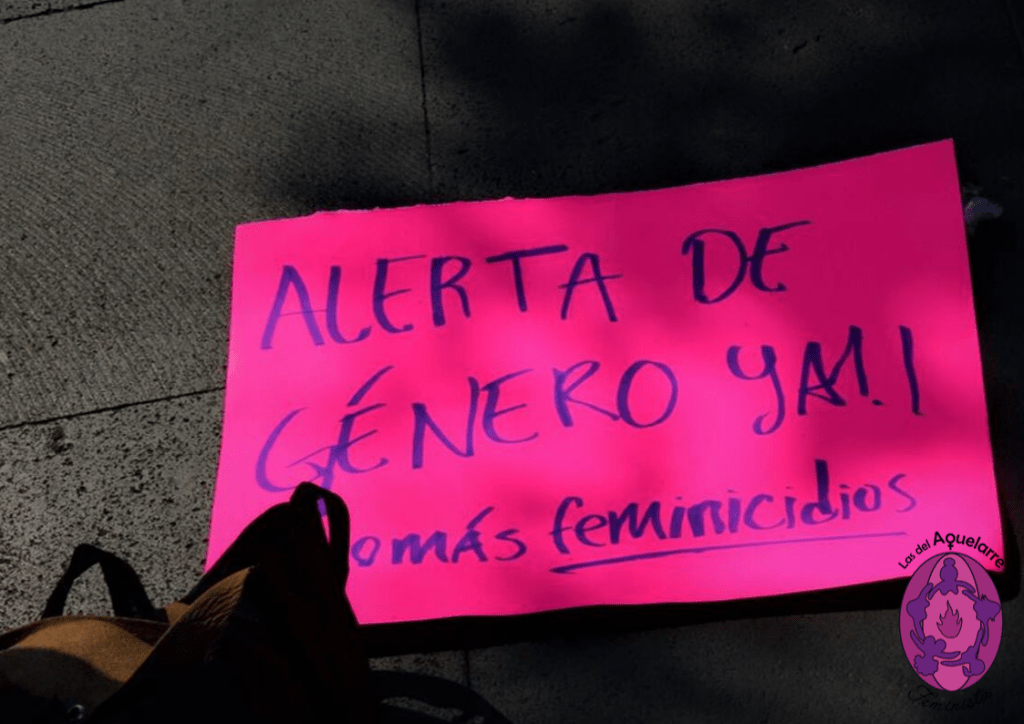 ALERTA DE
GÉNERO YA!!
omás feminicidios
Las del Aquelarre
Feminista